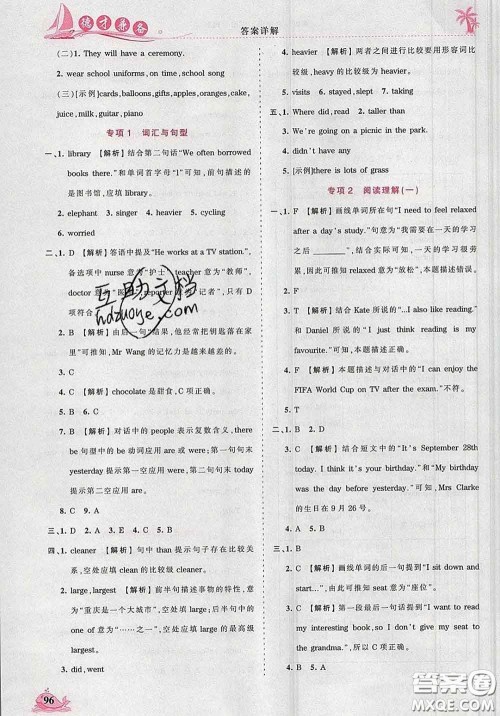 德才兼备
答案详解
(二)1. They will have a ceremony.
2. wear school uniforms, on time, school song
(三)[示例]cards,balloons,gifts,apples,oranges,cake,
juice,milk,guitar,piano
专项1 词汇与句型
一、1. library 【解析】结合第二句话“We often borrowed
books there.”和单词首字母“l”可知,前句描述的
是图书馆,应填 library。
2. elephant 3. singer 4. heavier 5. cycling
6. worried
二、1. D 【解析】答语中提及“He works at a TV station.”,
备选项中 nurse 意为“护士”, teacher 意为“教师”,
doctor 意为“医生”, reporter 意为“记者”,只有 D
项符合
2. B 【解析】由后一句“其他,他经常把钥匙忘在家
里”可推知, Mr Wang 的记忆力是越来越差的。
3. C
4. C 【解析】chocolate 是甜食,C 项正确。
5. B 6. C
7. B 【解析】对话中的 people 表示复数含义, there
be 句型中的 be 动词应用 are 或 were; 第一句句末
yesterday 提示第一空应用 were,第二句句末 today
提示第二空应用 are。
8. C 9. A
三、1. D 2. A 3. C 4. E 5. B
四、1. cleaner 【解析】句中 than 提示句子存在比较关
系,空处应填 clean 的比较级 cleaner。
2. large,largest 【解析】前半句描述事物的特性,意
为“重庆是一个大城市”,空处应填 large;后半句中的
one of 意为“……之一”,空处应填 large 的最高级
largest。
3. did,went
96
4. heavier 【解析】两者之间进行比较要用形容词比
较级, heavy 的比较级为 heavier。
5. visits 6. stayed,slept 7. taller than
五、1. Where did, read 2. taller than
3. We're going on a picnic in the park.
4. didn't have
5. [示例]there is lots of grass
专项2 阅读理解(一)
一、1. F 【解析】画线单词所在句“I need to feel relaxed
after a day's study.”意为“一天的学习之后我需要
______”,结合实际可知,一天的学习很劳
累,因此可推知 relaxed 意为“放松”,本题描述错
误。
2. T 【解析】结合 Kate 所说的“I like reading,”
和 Daniel 所说的“I just think reading is my
favourite.”可推知,本题描述正确。
4. F 【解析】本题描述与对话中的“I can enjoy the
FIFA World Cup on TV after the exam.”不符。
5. T
二、1. A 2. C
3. B 【解析】结合短文中的“It's September 28th
today. I think it's very funny.”和“My birthday
was the day before yesterday.”可推知, Mrs Clarke
的生日在 9 月 26 日。
4. A 5. B
三、1. B 2. C
3. B 【解析】画线单词的后一句提到“I sit down and
start…”,因此可推知 seat 意为“座位”。
4. C 【解析】第一段最后一句话提到“I want to read
my interesting book, so I don't give my seat to
the grandma.”,所以 C 项正确。
5. B
互助文档
hdzuoye.com
答案圈
MXQE.COM